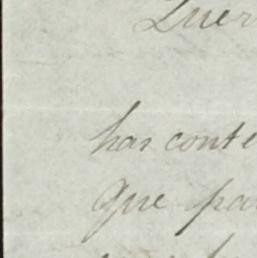 Quer
has conte
Que pa